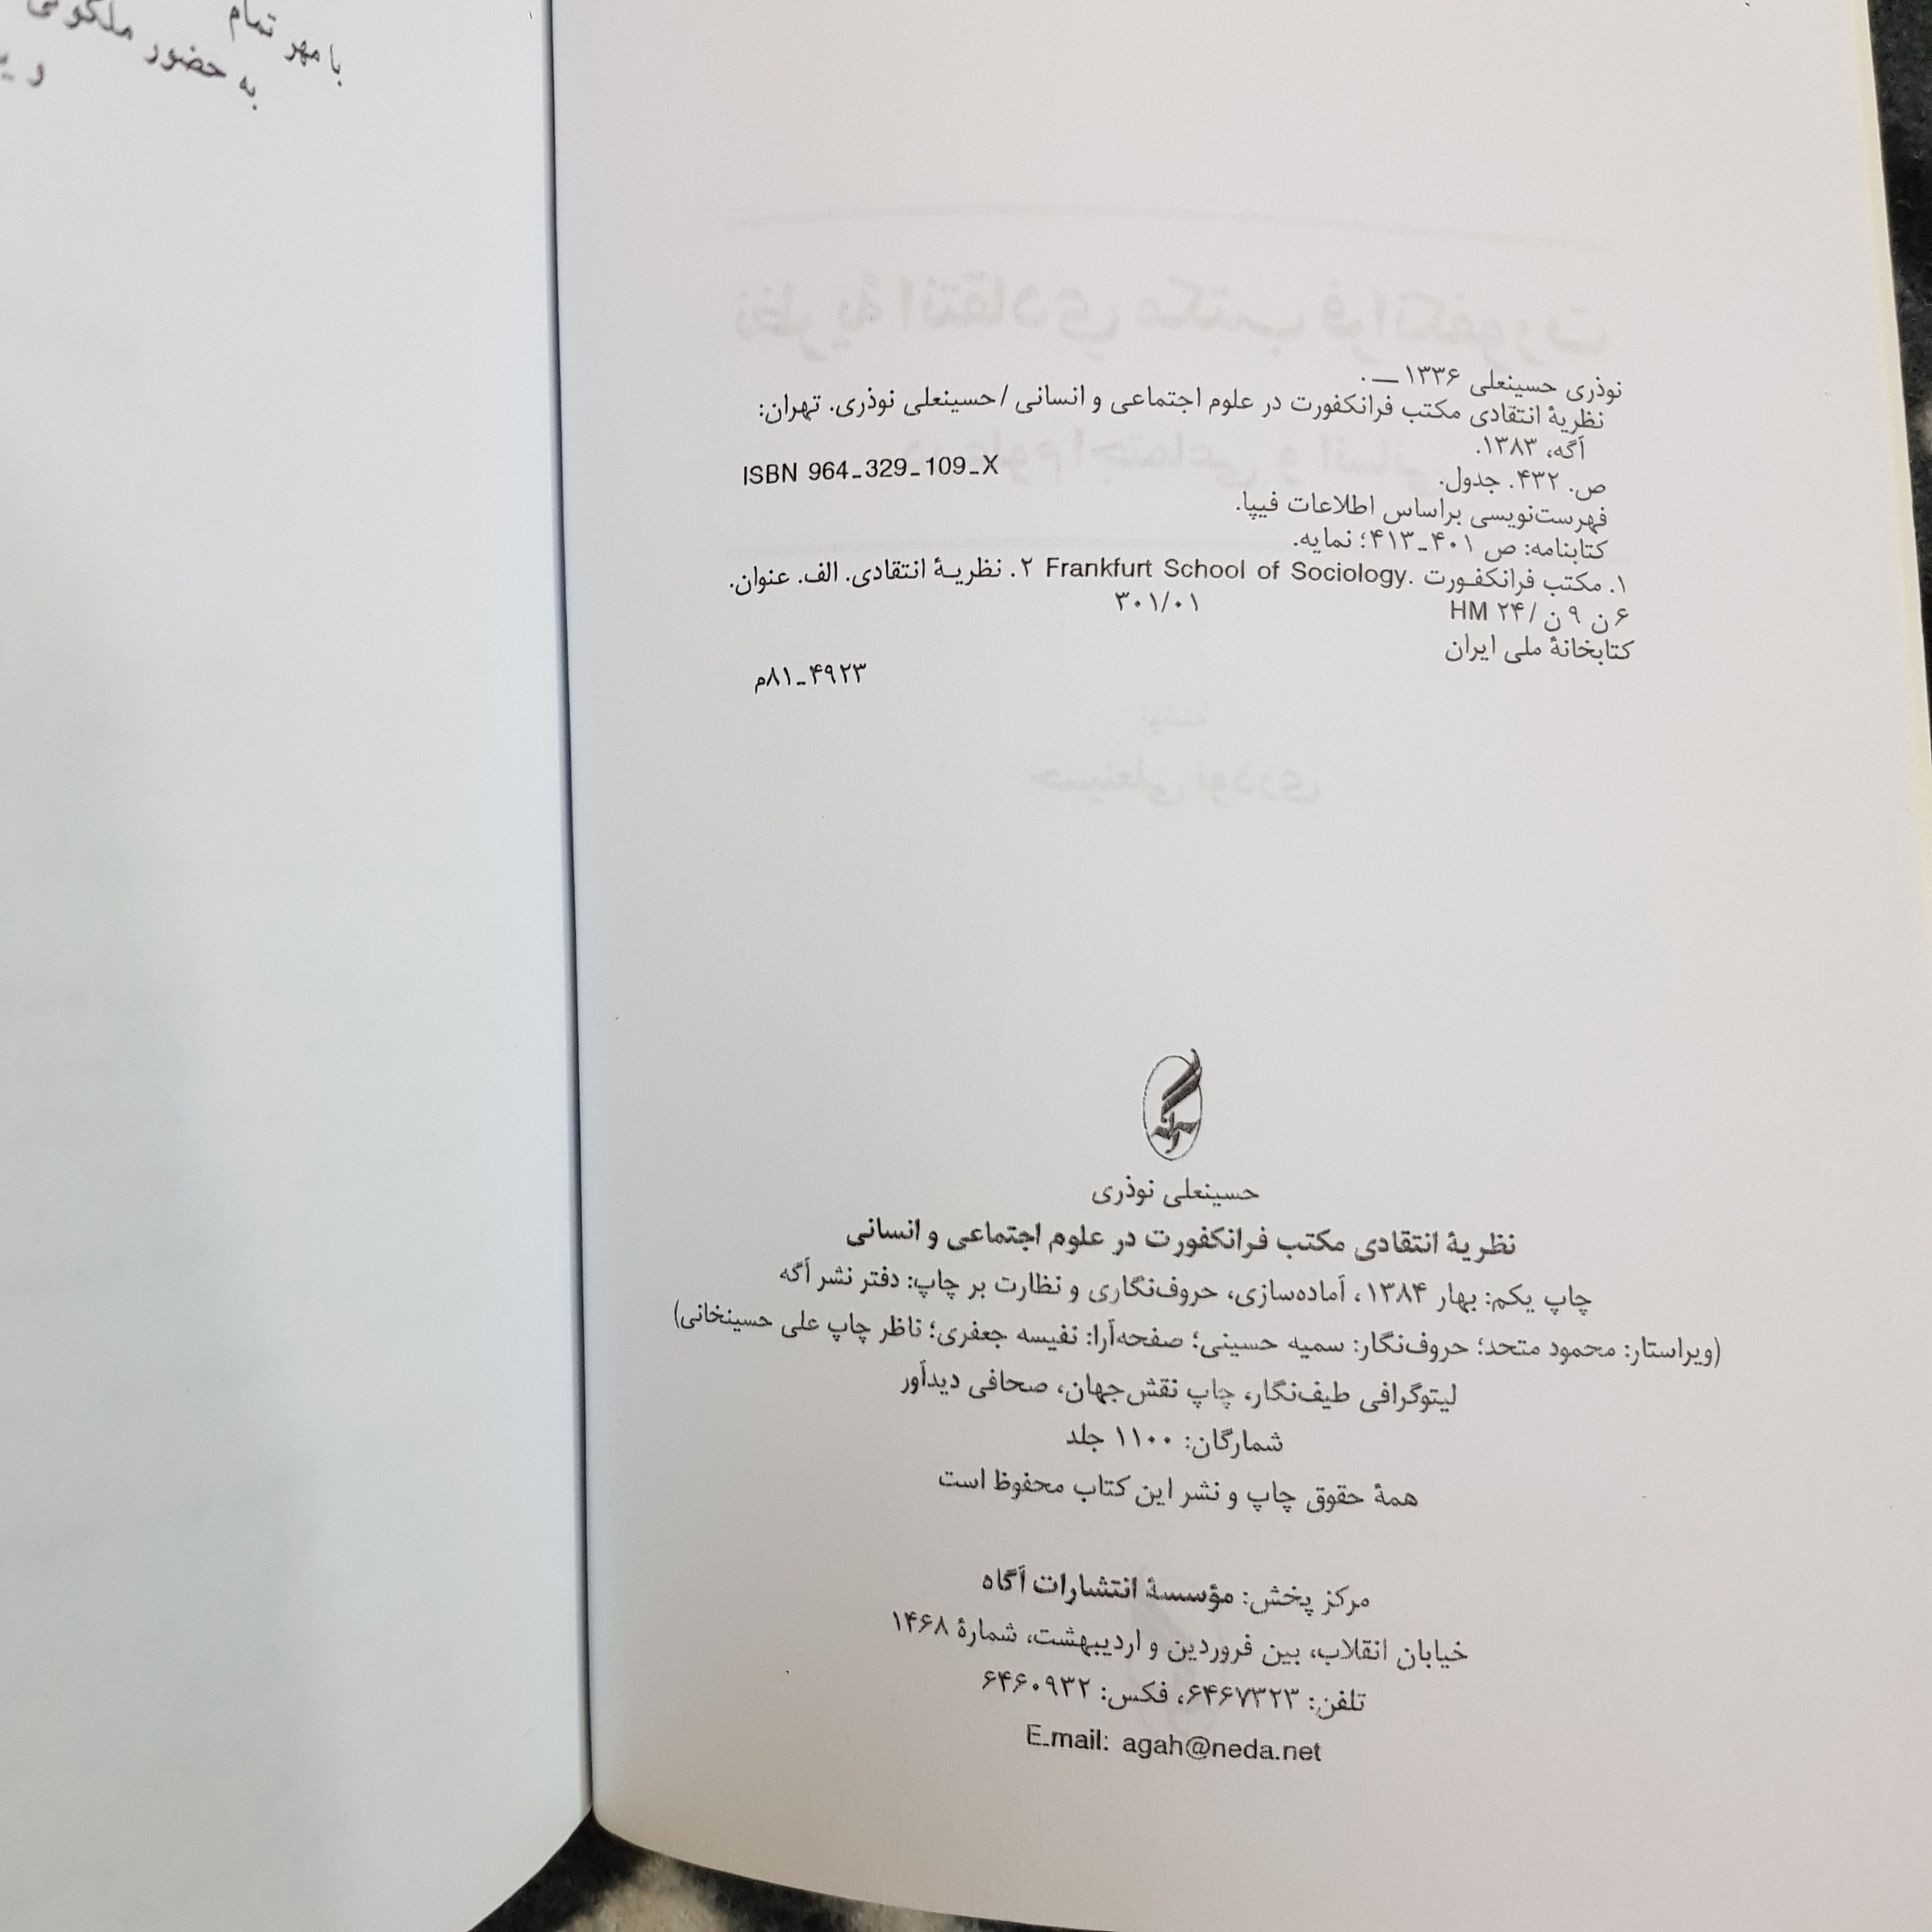 نوذری حسینعلی ۱۳۳۶ ــ .
نظریهٔ انتقادی مکتب فرانکفورت در علوم اجتماعی و انسانی / حسینعلی نوذری. تهران:
آگه، ۱۳۸۳.
ISBN 964-329-109-X
ص. ۴۳۲. جدول.
فهرست‌نویسی براساس اطلاعات فیپا.
کتابنامه: ص ۴۰۱-۴۱۳؛ نمایه.
۱. مکتب فرانکفورت .Frankfurt School of Sociology ۲. نظریهٔ انتقادی. الف. عنوان.
۶ ن ۹ ن / ۲۴ HM ۳۰۱/۰۱
کتابخانهٔ ملی ایران
۴۹۲۳-۸۱م
حسینعلی نوذری
نظریهٔ انتقادی مکتب فرانکفورت در علوم اجتماعی و انسانی
چاپ یکم: بهار ۱۳۸۴، آماده‌سازی، حروف‌نگاری و نظارت بر چاپ: دفتر نشر آگه
(ویراستار: محمود متحد؛ حروف‌نگار: سمیه حسینی؛ صفحه‌آرا: نفیسه جعفری؛ ناظر چاپ علی حسینخانی)
لیتوگرافی طیف‌نگار، چاپ نقش‌جهان، صحافی دیدآور
شمارگان: ۱۱۰۰ جلد
همهٔ حقوق چاپ و نشر این کتاب محفوظ است
مرکز پخش: مؤسسهٔ انتشارات آگاه
خیابان انقلاب، بین فروردین و اردیبهشت، شمارهٔ ۱۴۶۸
تلفن: ۶۴۶۷۳۲۳، فکس: ۶۴۶۰۹۳۲
E-mail: agah@neda.net
با مهر تمام
به حضور